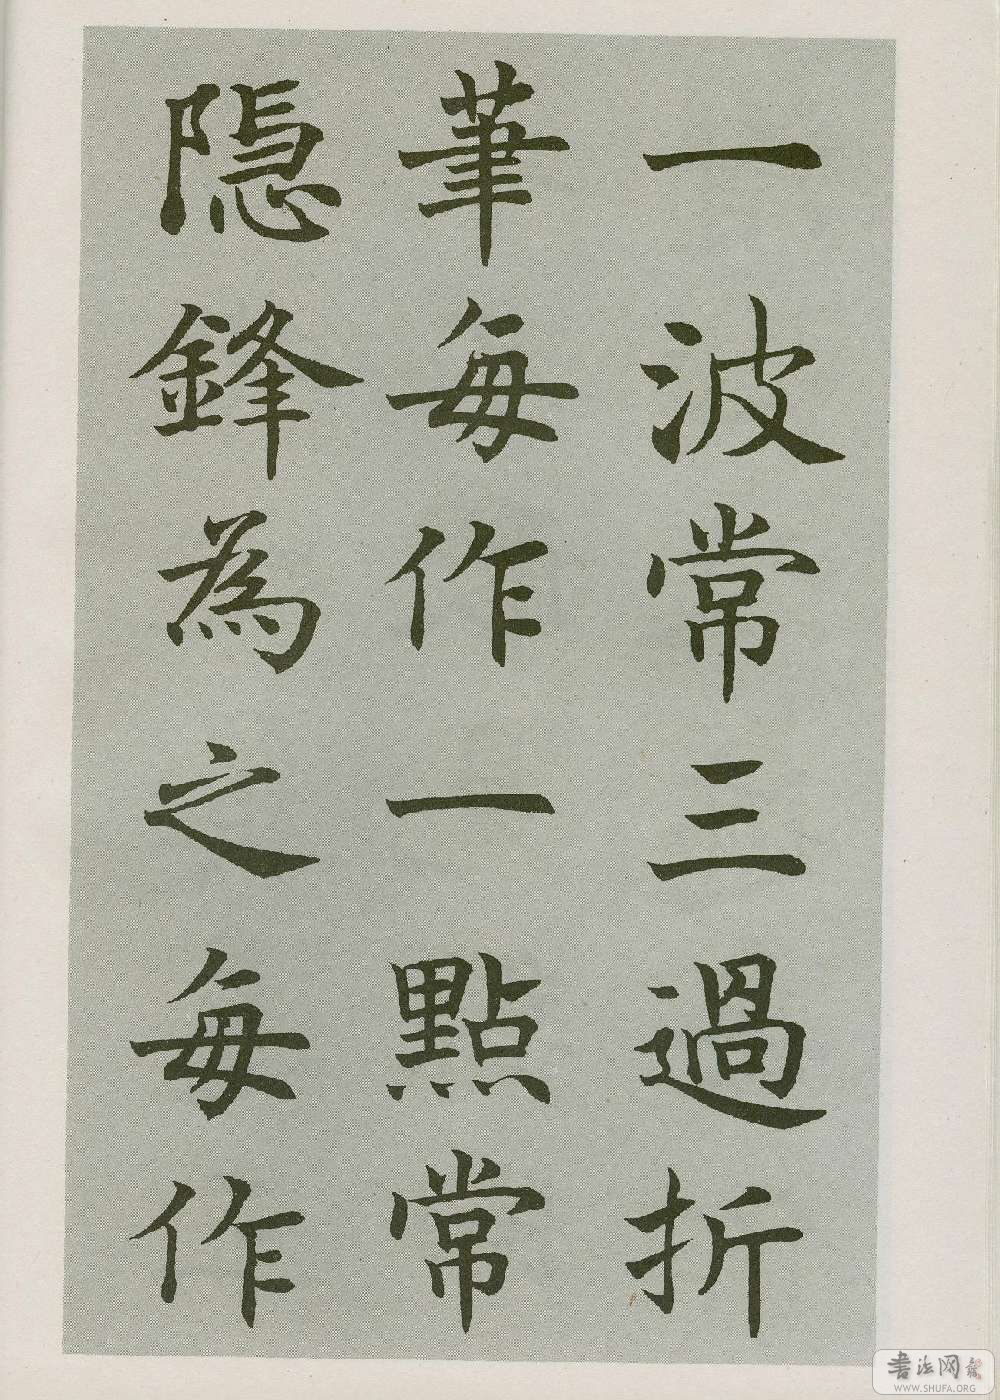 一波常三過折
筆每作一點常
隱鋒為之每作
書法网
WWW.SHUFA.ORG